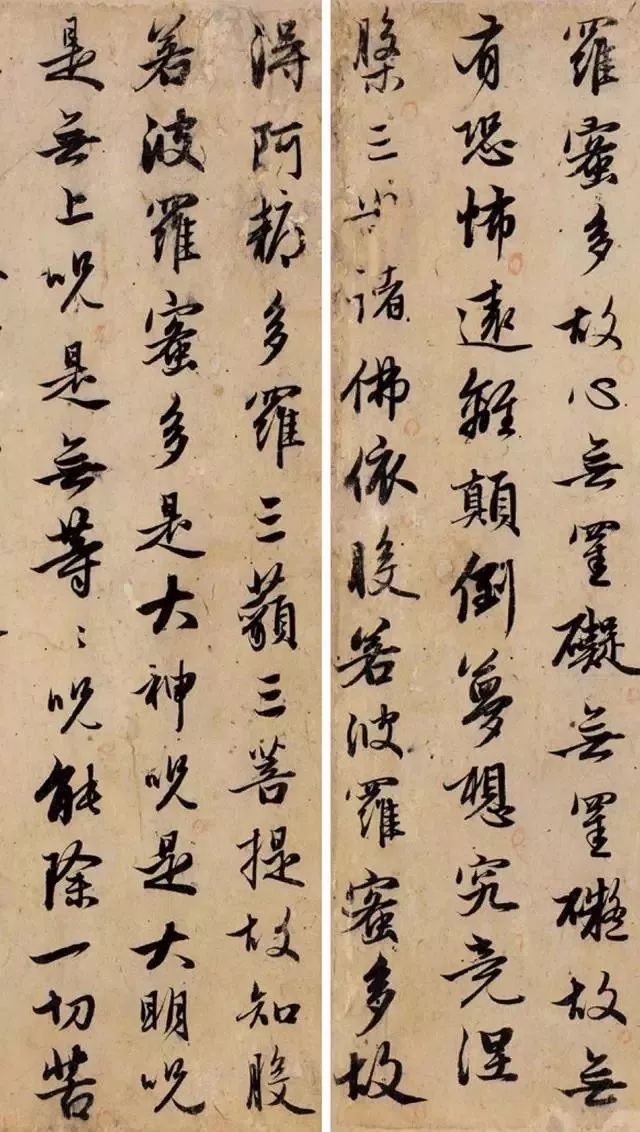 羅蜜多故心無罣礙無罣礙故無
有恐怖遠離顛倒夢想究竟涅
槃三世諸佛依般若波羅蜜多故
得阿耨多羅三藐三菩提故知般
若波羅蜜多是大神呪是大明呪
是無上呪是無等〻呪能除一切苦